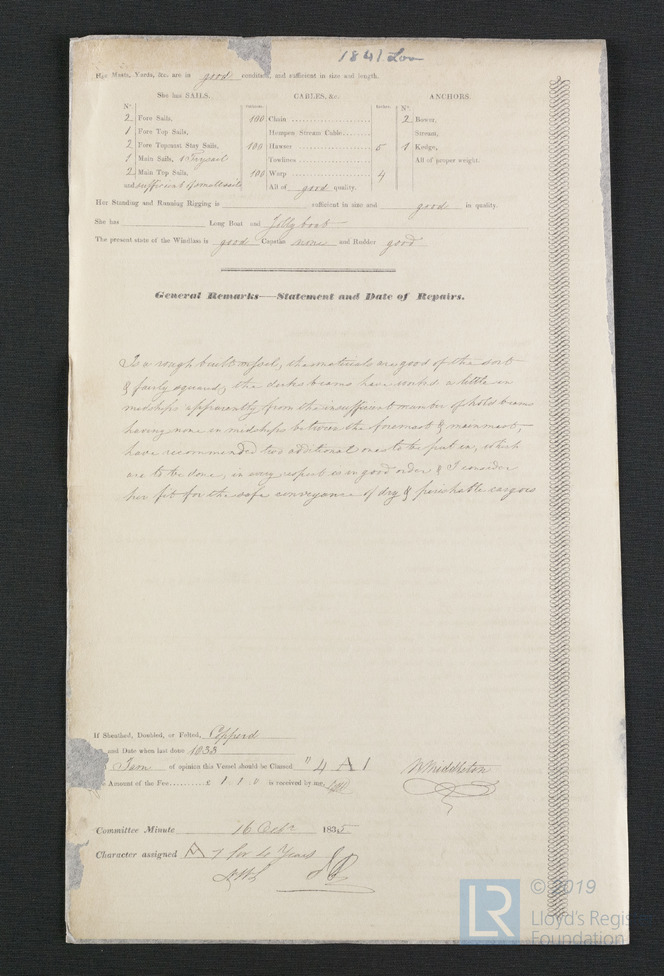 1841 Lon
Her Masts, Yards, &c. are in good condition, and sufficient in size and length.
She has SAILS. CABLES, &c. ANCHORS.
No. Fathoms. Inches. No.
2 Fore Sails, 100 Chain 2 Bower,
1 Fore Top Sails, Hempen Stream Cable Stream,
2 Fore Topmast Stay Sails, 100 Hawser 5 1 Kedge,
1 Main Sails, 1 Trysail Towlines All of proper weight.
2 Main Top Sails, 100 Warp 4
and sufficient of small sails All of good quality.
Her Standing and Running Rigging is sufficient in size and good in quality.
She has Long Boat and Jolly boat
The present state of the Windlass is good Capstan none and Rudder good
General Remarks—Statement and Date of Repairs.
Is a rough built vessel, the materials are good of the sort
& fairly squared, the decks beams have worked a little in
midships apparently from the insufficient number of hold beams
having none in midships between the foremast & mainmast,
have recommended two additional ones to be put in, which
are to be done, in every respect is in good order & I consider
her fit for the safe conveyance of dry & perishable cargoes
If Sheathed, Doubled, or Felted,
and Date when last done 1833
I am of opinion this Vessel should be Classed "4 A 1
Amount of the Fee £ 1 . 1 . 0 is received by me,
W Middleton
Committee Minute 16 Octr 1835
Character assigned A 1 for 4 Years
© 2019
LR
Lloyd's Regis
Foundation